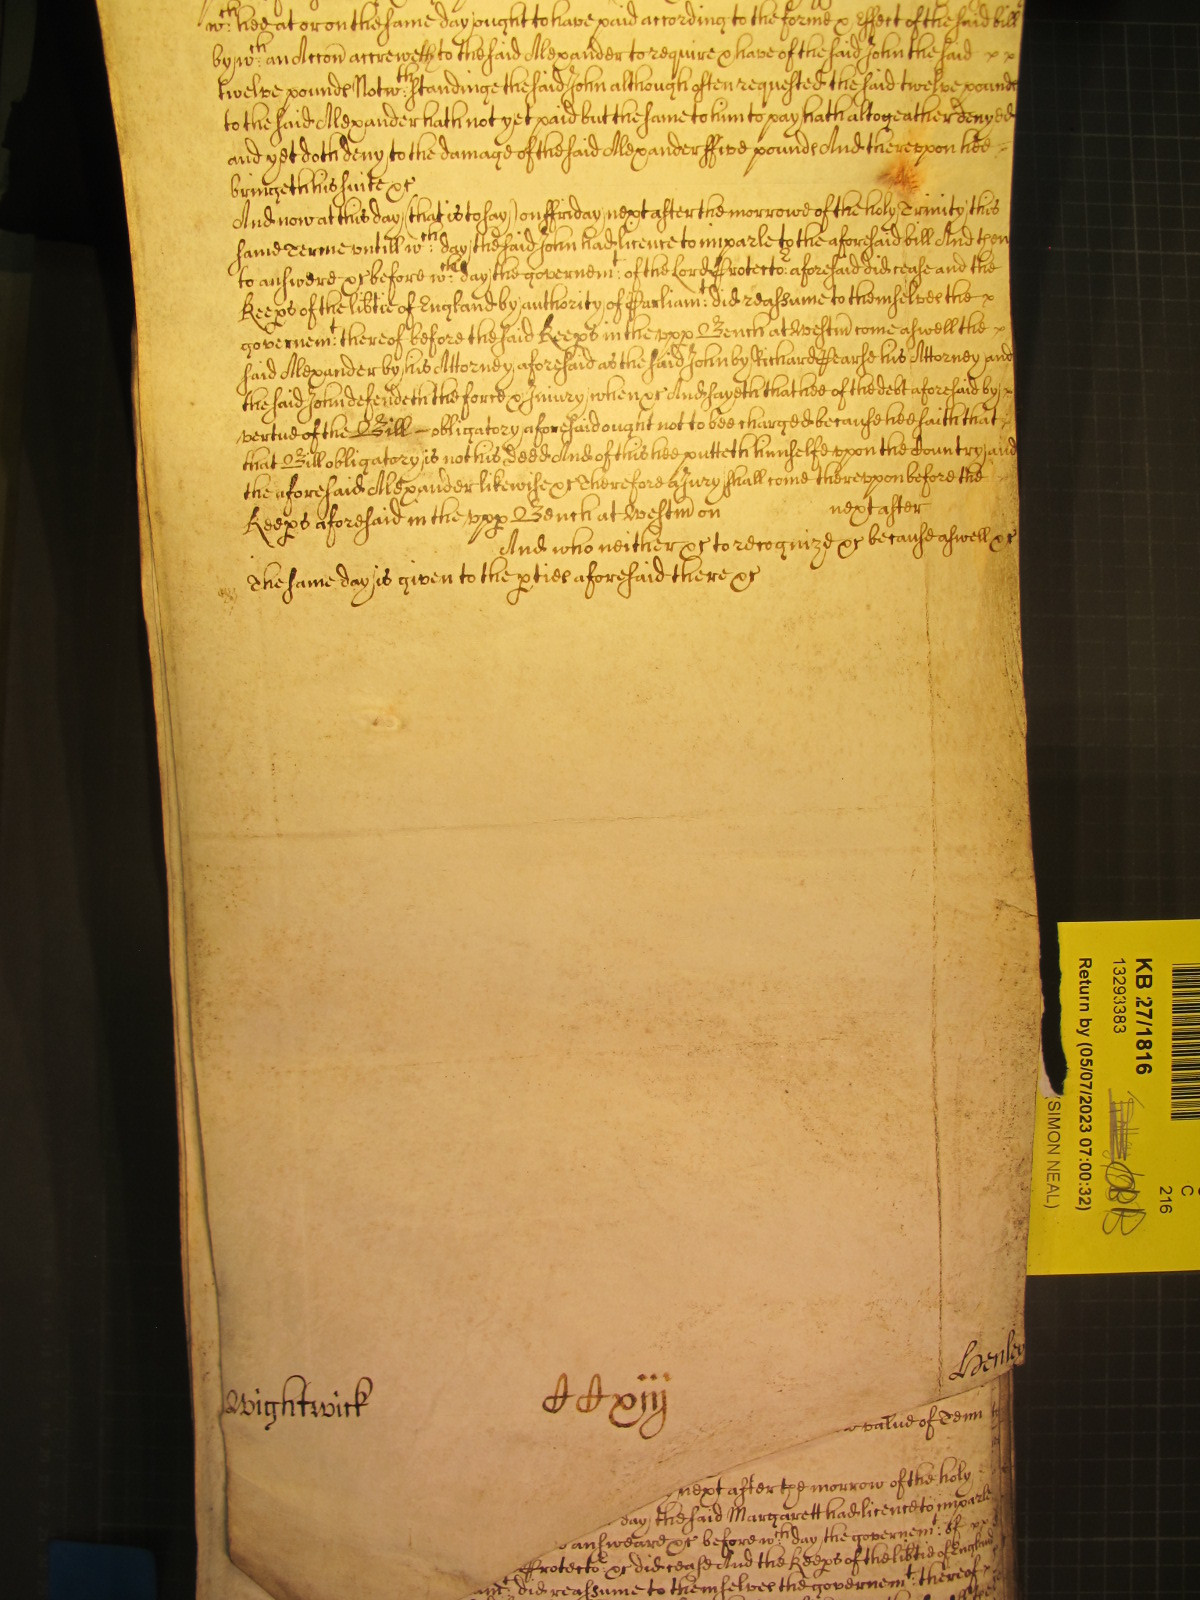 w:ch hee at or on the same day ought to have paid according to the forme & effect of the said bill
by w:ch an Accon accreweth to the said Alexander to require & have of the said John the said
twelve pounds Notw:thstandinge the said John although often requested the said twelve pounds
to the said Alexander hath not yet paid but the same to him to pay hath altogeather denyed
and yet doth deny to the damage of the said Alexander ffive pounds And thereupon hee
bringeth his suite &c
And now at this day (that is to say) on ffriday next after the morrowe of the holy Trinity this
same Terme untill w:ch day the said John had licence to imparle to the aforesaid bill And then
to answere &c before w:ch day the governem:t of the Lord Protector aforesaid did cease and the
Keeps of the libtie of England by authority of Parliam:t did reassume to themselves the
governem:t thereof before the said Keeps in the upp Bench at Westm come aswell the
said Alexander by his Attorney aforesaid as the said John by Richard Pearse his Attorney and
the said John defendeth the force & Injury when &c And sayeth that hee of the debt aforesaid by
vertue of the Bill obligatory aforesaid ought not to bee charged because hee saith that
that Bill obligatory is not his deed And of this hee putteth himselfe upon the Country and
the aforesaid Alexander likewise &c Therefore a Jury shall come thereuppon before the
Keeps aforesaid in the upp Bench at Westm on next after
And who neither &c to recognize &c because aswell &c
The same day is given to the pties aforesaid there &c
Wightwick
xiij
Henley
value of Tenn
next after the morrow of the holy
day the said Margarett had licence to imparle
answeare &c before w:ch day the governem:t of
Protector &c did cease And the Keeps of the libtie of England
did reassume to themselves the governem:t thereof
KB 27/1816
13293383
Return by (05/07/2023 07:00:32)
(SIMON NEAL)
216
C